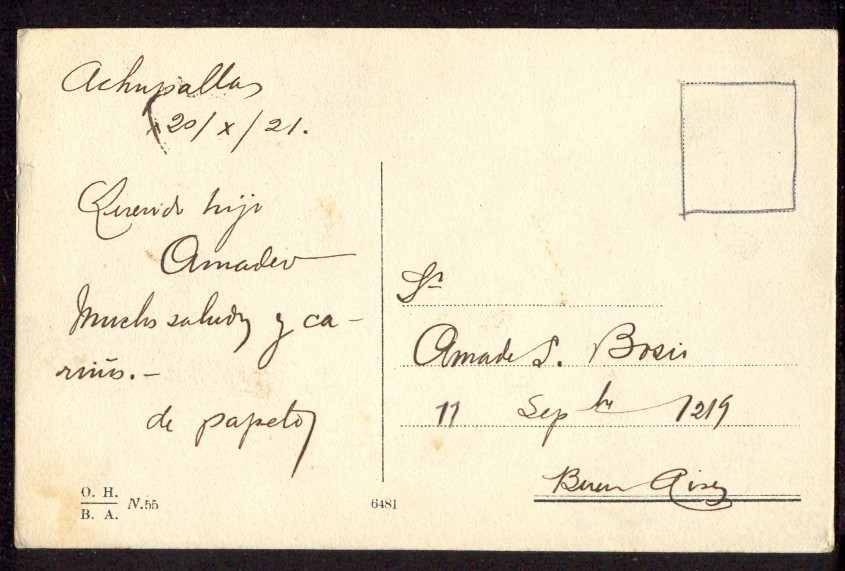 Achupallas
20/x/21.
Querido hijo
Amadeo
Muchos saludos y ca-
riños.-
de papeto
Sr
Amadeo S. Bosis
11 Sepbre 1219
Buenos Aires
O. H.
B. A.
N.55
6481